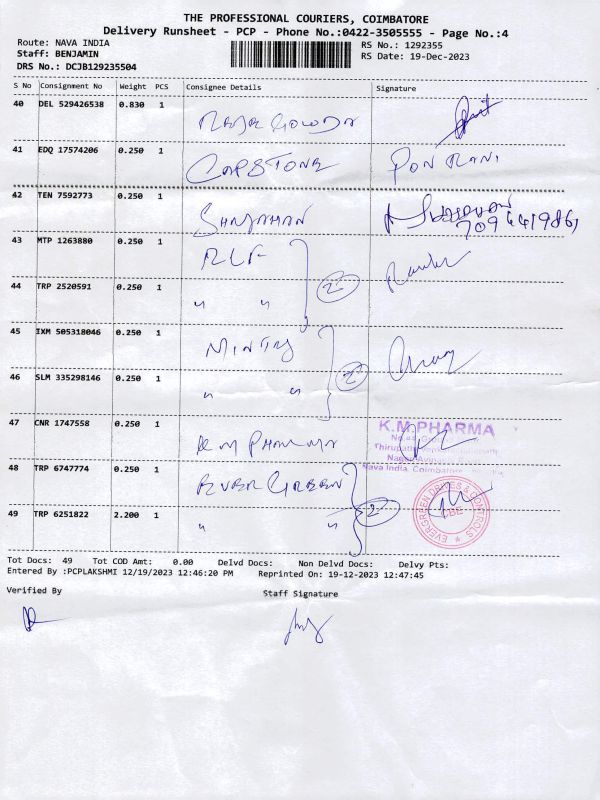 THE PROFESSIONAL COURIERS, COIMBATORE
Delivery Runsheet - PCP - Phone No.:0422-3505555 - Page No.:4
Route: NAVA INDIA
RS No.: 1292355
Staff: BENJAMIN
RS Date: 19-Dec-2023
DRS No.: DCJB129235504
S No Consignment No Weight PCS Consignee Details Signature
40 DEL 529426538 0.830 1
41 EDQ 17574206 0.250 1 CAPSTONE PON RANI
42 TEN 7592773 0.250 1
43 MTP 1263880 0.250 1 RLF
44 TRP 2520591 0.250 1 " " 2
45 IXM 505318046 0.250 1
46 SLM 335298146 0.250 1 " " 2
47 CNR 1747558 0.250 1 K M PHARMA
K.M.PHARMA
Nava India, Coimbatore
48 TRP 6747774 0.250 1 EVER GREEN
49 TRP 6251822 2.200 1 " " 2
EVERGREEN DRIVES & CONTROLS
CBE
Tot Docs: 49 Tot COD Amt: 0.00 Delvd Docs: Non Delvd Docs: Delvy Pts:
Entered By :PCPLAKSHMI 12/19/2023 12:46:20 PM Reprinted On: 19-12-2023 12:47:45
Verified By
Staff Signature